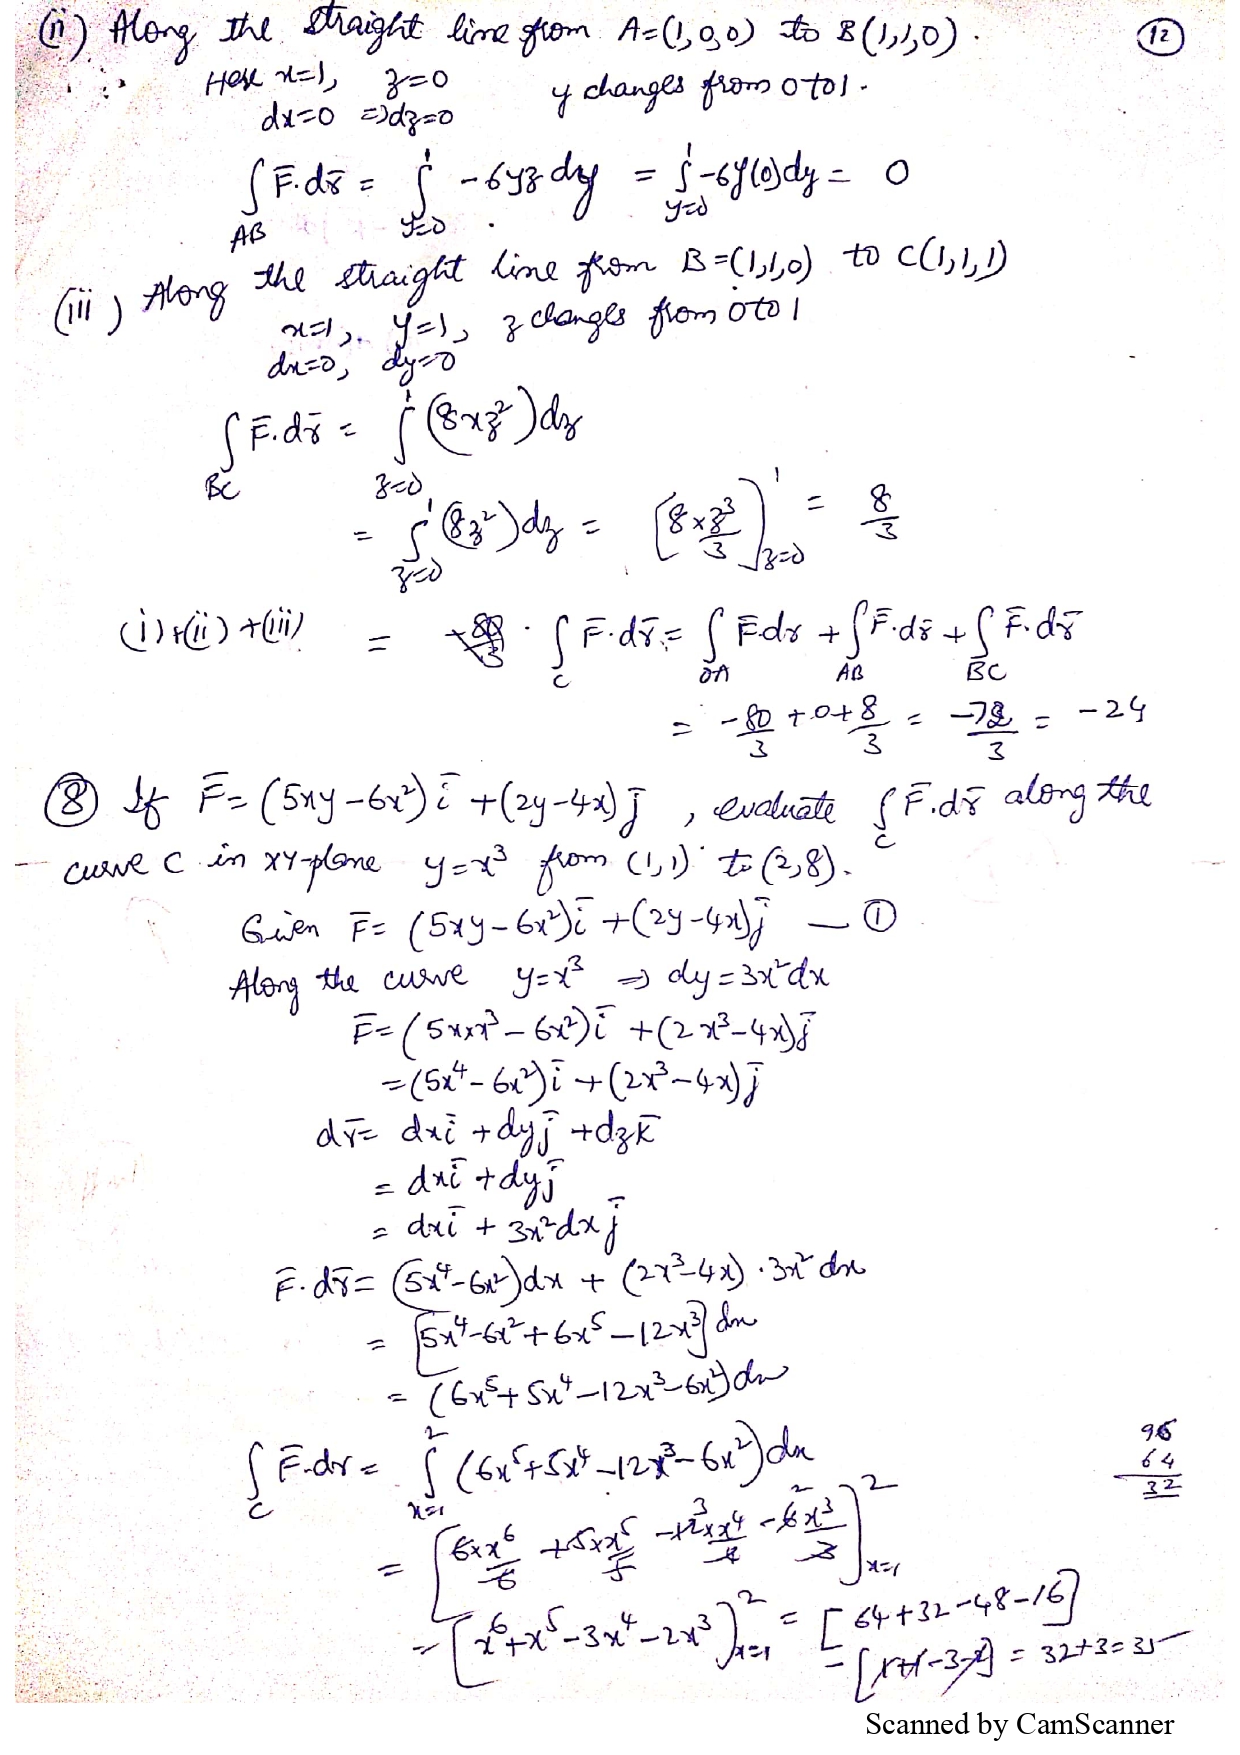 (ii) Along the straight line from A=(1,0,0) to B(1,1,0). (12)
Here x=1, z=0 y changes from 0 to 1.
dx=0 ⇒dz=0
∫_AB F̄.dr̄ = ∫_{y=0}^{1} -6yz dy = ∫_{y=0}^{1} -6y(0)dy = 0
(iii) Along the straight line from B=(1,1,0) to C(1,1,1)
x=1, y=1, z changes from 0 to 1
dx=0, dy=0
∫_BC F̄.dr̄ = ∫_{z=0}^{1} (8xz²)dz
= ∫_{z=0}^{1} (8z²)dz = [8×z³/3]_{z=0}^{1} = 8/3
(i)+(ii)+(iii) = ∫_C F̄.dr̄ = ∫_OA F̄.dr + ∫_AB F̄.dr̄ + ∫_BC F̄.dr̄
= -80/3 + 0 + 8/3 = -72/3 = -24
(8) If F̄ = (5xy-6x²)ī + (2y-4x)j̄, evaluate ∫_C F̄.dr̄ along the
curve C in xy-plane y=x³ from (1,1) to (2,8).
Given F̄ = (5xy-6x²)ī + (2y-4x)j̄ — (1)
Along the curve y=x³ ⇒ dy=3x²dx
F̄ = (5x×x³-6x²)ī + (2x³-4x)j̄
= (5x⁴-6x²)ī + (2x³-4x)j̄
dr̄ = dxī + dyj̄ + dzk̄
= dxī + dyj̄
= dxī + 3x²dx j̄
F̄.dr̄ = (5x⁴-6x²)dx + (2x³-4x).3x² dx
= [5x⁴-6x²+6x⁵-12x³]dx
= (6x⁵+5x⁴-12x³-6x²)dx
∫_C F̄.dr = ∫_{x=1}^{2} (6x⁵+5x⁴-12x³-6x²)dx
96
64
32
= [6×x⁶/6 + 5×x⁵/5 - 12×x⁴/4 - 6x³/3]_{x=1}^{2}
= [x⁶+x⁵-3x⁴-2x³]_{x=1}^{2} = [64+32-48-16]
- [1+1-3-2] = 32+3=35
Scanned by CamScanner